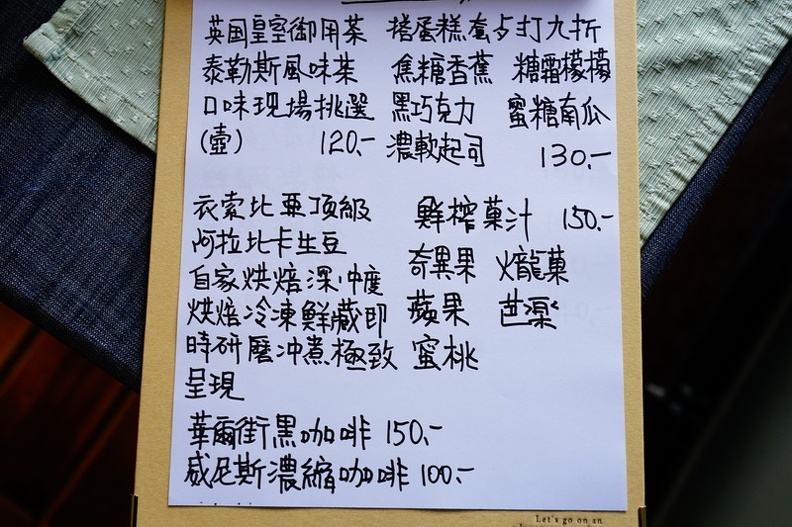 英国皇室御用茶
泰勒斯風味茶
口味現場挑選
(壺) 120.-
搭蛋糕套占打九折
焦糖香蕉 糖霜檬檬
黑巧克力 蜜糖南瓜
濃軟起司 130.-
衣索比亜頂級
阿拉比卡生豆
自家烘焙深.中度
烘焙冷凍鮮蔵即
時研磨冲煮極致
呈現
華爾街黑咖啡 150.-
威尼斯濃縮咖啡 100.-
鮮榨菓汁 150.-
奇異果 火龍菓
蘋果 芭楽
蜜桃
Let's go on an